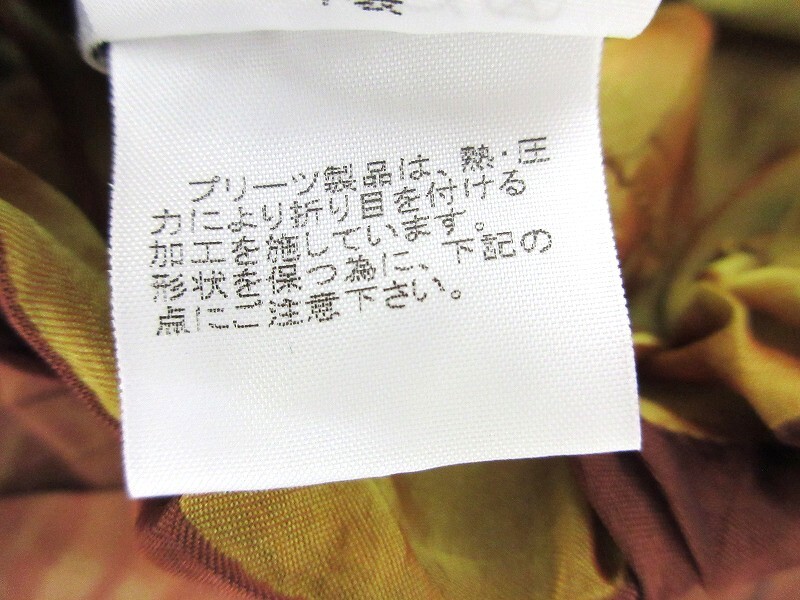 プリーツ製品は、熱・圧
力により折り目を付ける
加工を施しています。
形状を保つ為に、下記の
点にご注意下さい。